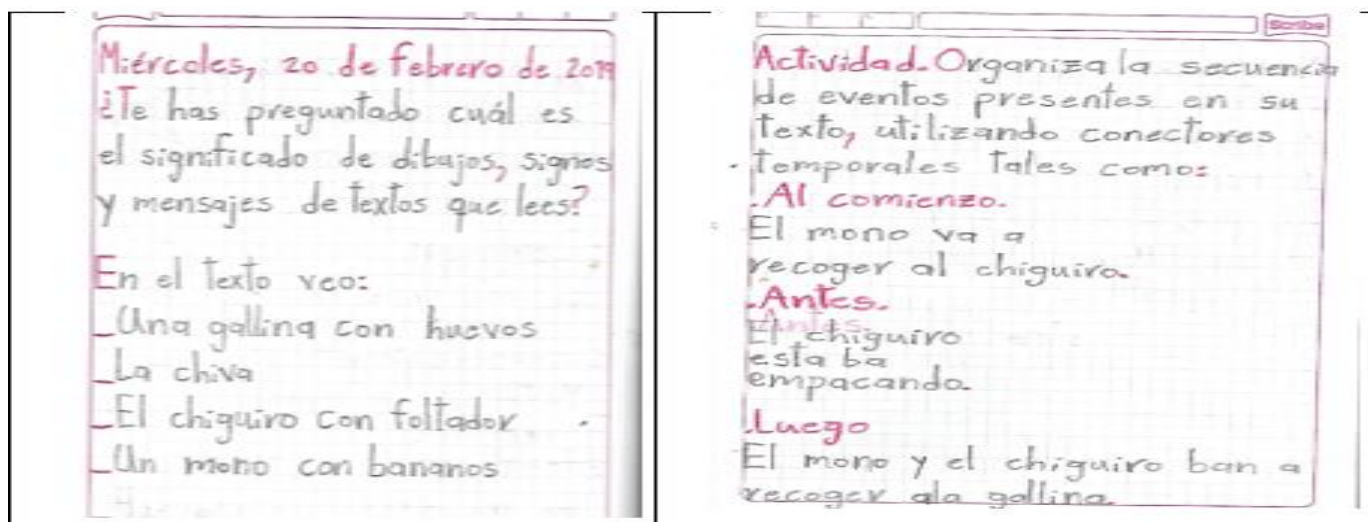 Miércoles, 20 de febrero de 2019
¿Te has preguntado cuál es
el significado de dibujos, signos
y mensajes de textos que lees?
En el texto veo:
_Una gallina con huevos
_La chiva
_El chiguiro con foltador
_Un mono con bananos
Scribe
Actividad. Organiza la secuencia
de eventos presentes en su
texto, utilizando conectores
temporales tales como:
.Al comienzo.
El mono va a
recoger al chiguiro.
.Antes.
El chiguiro
esta ba
empacando.
.Luego
El mono y el chiguiro ban a
recoger ala gallina.